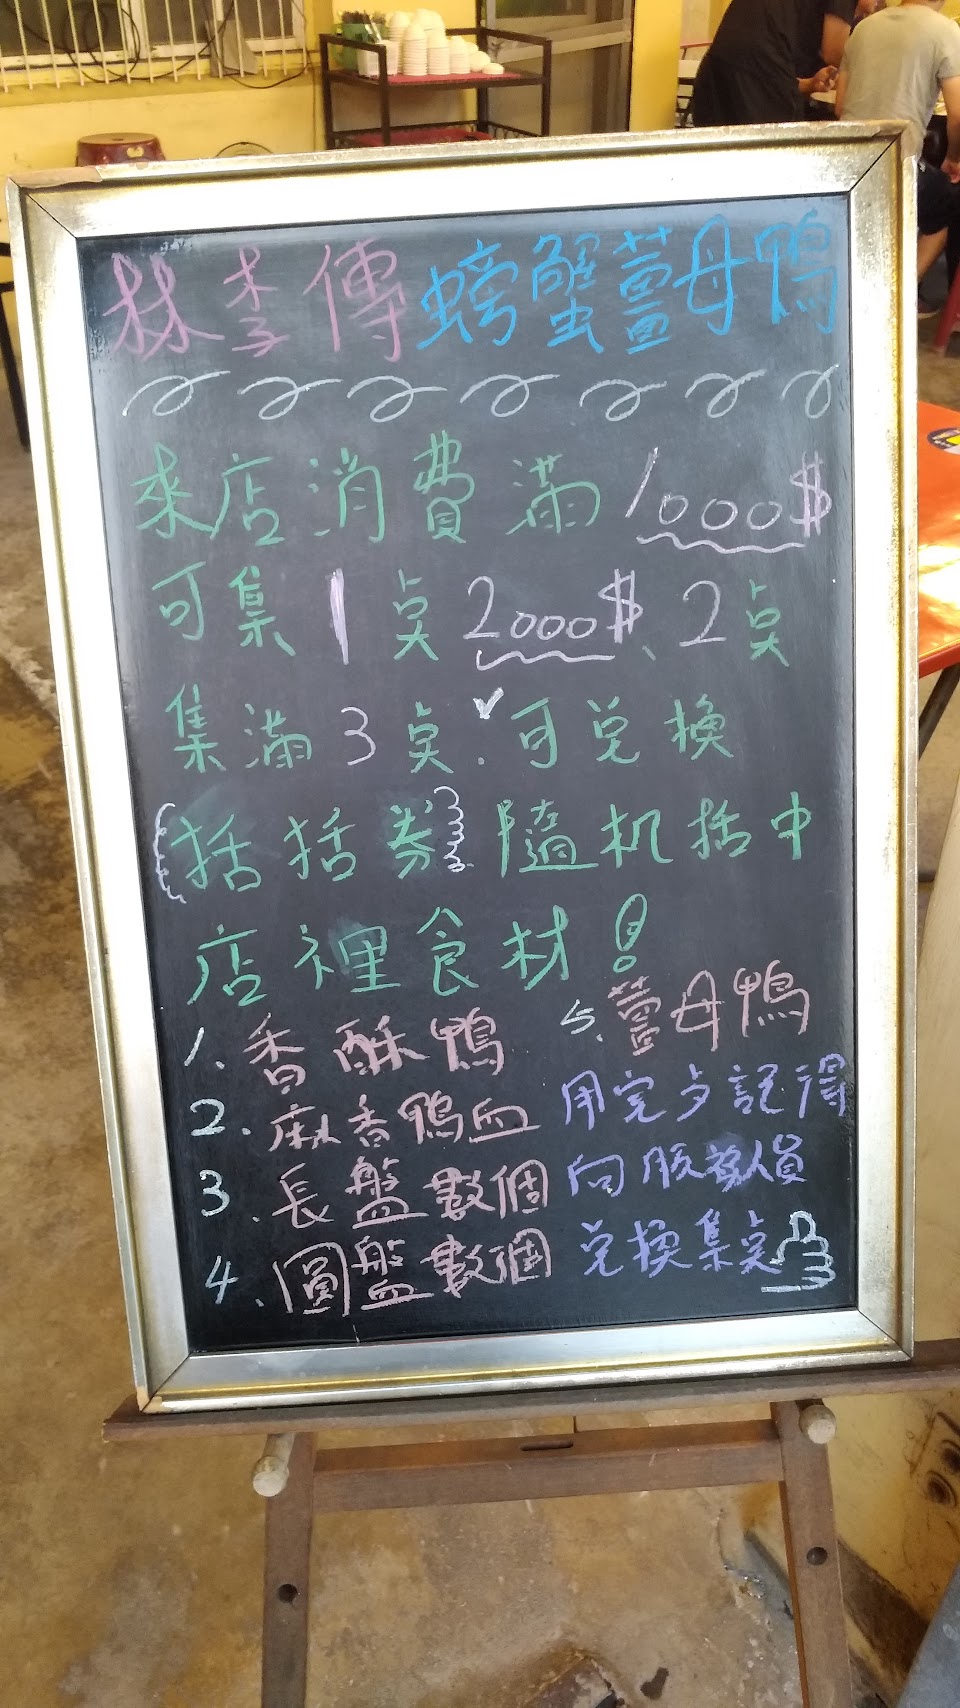 林李傳螃蟹薑母鴨
來店消費滿1000$
可集1点2000$、2点
集滿3点.可兑換
(括括券)隨机括中
店裡食材!
1、香酥鴨
2.麻香鴨血
3、長盤數個
4、圓盤數個
5、薑母鴨
用完歺記得
向服務人員
兑換集点